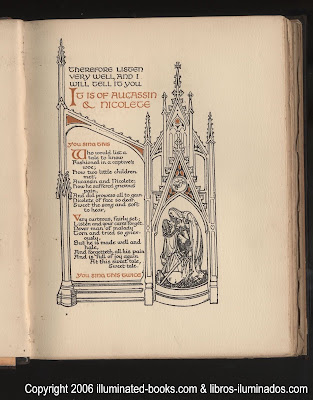 THEREFORE LISTEN
VERY WELL, AND I
WILL TELL IT YOU
IT IS OF AUCASSIN
& NICOLETE
YOU SING THIS
Who would list a
tale to know
Fashioned in a captive's
woe,
How two little children
met,
Aucassin and Nicolete;
How he suffered grievous
pain,
And did prowess all to gain
Nicolete, of face so dear.
Sweet the song and soft
to hear,
Very curteous, fairly set;
Listen and your cares forget.
Never man of melody
Torn and tried so griev-
ously,
But he is made well and
hale,
And forgetteth all his pain
And is full of joy again
At this sweet tale,
Sweet tale.
YOU SING THIS TWICE
Copyright 2006 illuminated-books.com & libros-iluminados.com